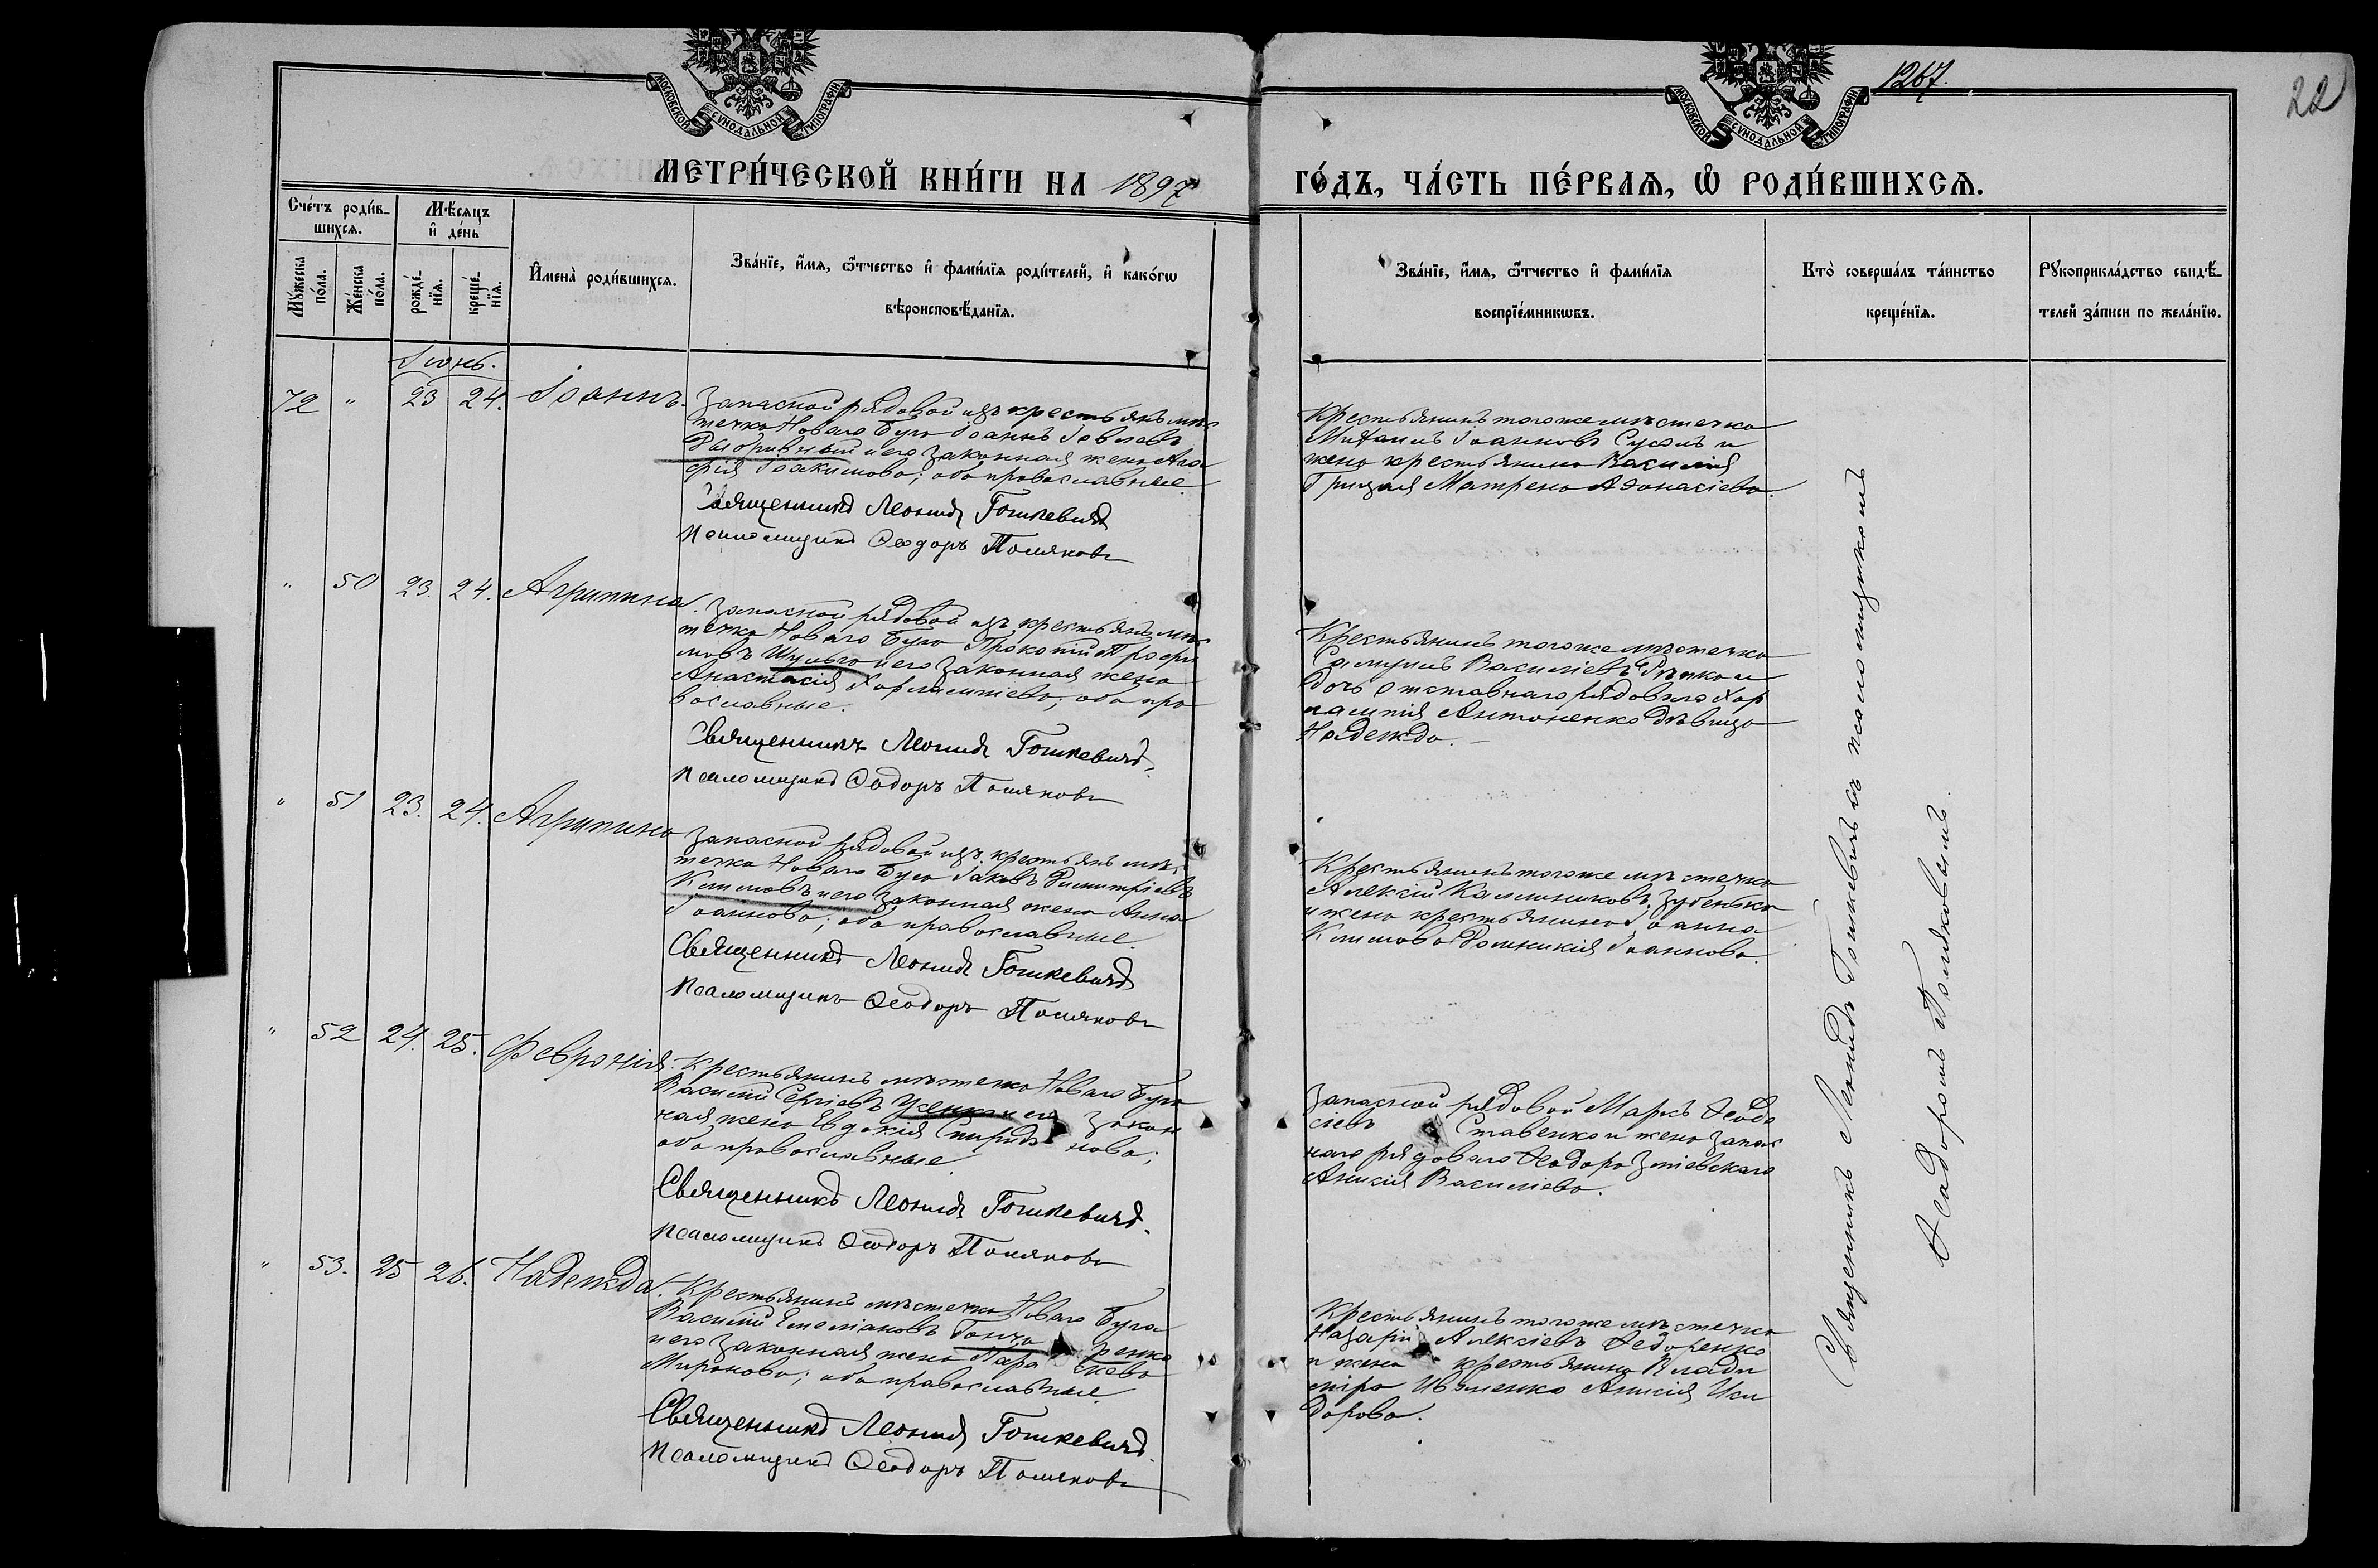 МОСКОВСКОЙ СѴНОДАЛЬНОЙ ТИПОГРАФІИ
МОСКОВСКОЙ СѴНОДАЛЬНОЙ ТИПОГРАФІИ
1267.
22
МЕТРИ́ЧЕСКОЙ КНИ́ГИ НА 1897 ГО́ДЪ, ЧА́СТЬ ПЕ́РВАѦ, Ѡ РОДИ́ВШИХСѦ.
Сче́тъ роди́в-
шихсѧ.
Мѣ́сяцъ
и҆ де́нь
Мꙋ́жеска
по́ла.
Же́нска
по́ла.
рожде́-
нїѧ.
креще́-
нїѧ.
И҆мена̀ роди́вшихсѧ.
Зва́нїе, и҆́мѧ, ѻ҆́тчество и҆ фами́лїѧ роди́телей, и҆ како́гѡ
вѣроисповѣ́данїѧ.
Зва́нїе, и҆́мѧ, ѻ҆́тчество и҆ фами́лїѧ
воспрїе́мникѡвъ.
Кто̀ соверша́лъ та́инство
креще́нїѧ.
Рꙋкоприкла́дство свидѣ́-
телей за́писи по жела́нїю.
Іюнь.
72 " 23 24. Іоаннъ.
Запасной рядовой изъ крестьянъ мѣс
течка Новаго Буга Іоаннъ Іовлевъ
и его законная жена Ага
фія Іоакимова; оба православные.
Священникъ Леонидъ Гошкевичъ
Псаломщикъ Ѳеодоръ Поляковъ
Крестьянинъ того же мѣстечка
Михаилъ Іоанновъ и
жена крестьянина Василія
Грицая Матрена Аѳонасіева.
" 50 23. 24. Агрипина.
Запасной рядовой изъ крестьянъ мѣс
течка Новаго Буга Прокопій Трофи
мовъ Шульга и его законная жена
Анастасія Харлампіева; оба пра
вославные.
Священникъ Леонидъ Гошкевичъ.
Псаломщикъ Ѳеодоръ Поляковъ
Крестьянинъ того же мѣстечка
Самуилъ Василіевъ Рѣпка и
дочь отставнаго рядоваго Хар
лампія Антоненко дѣвица
Надежда.
" 51 23. 24. Агрипина
Запасной рядовой изъ крестьянъ мѣс
течка Новаго Буга Іаковъ Димитріевъ
Климовъ и его законная жена Анна
Іоаннова; оба православные.
Священникъ Леонидъ Гошкевичъ
Псаломщикъ Ѳеодоръ Поляковъ
Крестьянинъ того же мѣстечка
Алексій Каллиниковъ Зубенько
и жена крестьянина Іоанна
Климова Домникія Іоаннова.
" 52 24. 25. Февронія.
Крестьянинъ мѣстечка Новаго Буга
Василій Сергіевъ Усенко и его закон
ная жена Евдокія Спиридонова;
оба православные.
Священникъ Леонидъ Гошкевичъ.
Псаломщикъ Ѳеодоръ Поляковъ
Запасной рядовой Маркъ Ѳеодо
сіевъ Ставенко и жена запас
наго рядоваго Ѳеодора Зміевскаго
Анисія Василіева.
" 53. 25 26. Надежда.
Крестьянинъ мѣстечка Новаго Буга
Василій Емеліановъ Гончаренко
и его законная жена Параскева
Миронова; оба православные.
Священникъ Леонидъ Гошкевичъ.
Псаломщикъ Ѳеодоръ Поляковъ
Крестьянинъ того же мѣстечка
Назарій Алексіевъ Ѳедоренко
и жена крестьянина Влади
міра Ивленко Анисія Иси
дорова.
Священникъ Леонидъ Гошкевичъ съ псаломщикомъ
Ѳеодоромъ Поляковымъ.